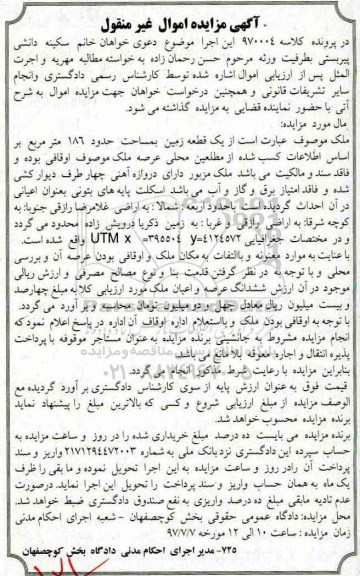 آگهی مزایده اموال غیر منقول
در پرونده کلاسه ۹۷۰۰۰۴ این اجرا موضوع دعوی خواهان خانم سکینه دانشی
پیربستی بطرفیت ورثه مرحوم حسن رحمان زاده به خواسته مطالبه مهریه و اجرت
المثل پس از ارزیابی اموال اشاره شده توسط کارشناس رسمی دادگستری وانجام
سایر تشریفات قانونی و همچنین درخواست خواهان جهت مزایده اموال به شرح
آتی با حضور نماینده قضایی به مزایده گذاشته می شود.
مال مورد مزایده:
ملک موصوف عبارت است از یک قطعه زمین بمساحت حدود ۱۸۶ متر مربع بر
اساس اطلاعات کسب شده از مطلعین محلی عرصه ملک موصوف اوقافی بوده و
فاقد سند و مالکیت می باشد ملک مزبور دارای دروازه آهنی چهار طرف دیوار کشی
شده و فاقد امتیاز برق و گاز و آب می باشد اسکلت پایه های بتونی بعنوان اعیانی
در آن احداث گردیده است باحدود اربعه : شمالا: به اراضی غلامرضا رازقی جنوبا: به
کوچه شرقا: به اراضی رازقی و غربا : به زمین ذکریا درویش زاده محدود می گردد
و در مختصات جغرافیایی UTM x =۳۹۵۵۰۴ y=۴۱۲۴۵۷۲ واقع شده است.
با عنایت به موارد معنونه و باالتفات به مکان ملک و اوقافی بودن عرصه آن و بررسی
محلی و با توجه به در نظر گرفتن قدمت بنا و نوع مصالح مصرفی و ارزش ریالی
موجود در آن ارزش ششدانگ عرصه و اعیان ملک مورد ارزیابی کلا به مبلغ چهارصد
و بیست میلیون ریال معادل چهل و دو میلیون تومان محاسبه و بر آورد می گردد.
با توجه به اوقافی بودن ملک و بااستعلام اداره اوقاف آن اداره در پاسخ اعلام نمود که
انجام مزایده مشروط به جانشینی برنده مزایده به عنوان مستاجر موقوفه با پرداخت
پذیره انتقال و اجاره معوقه بلامانع می باشد.
بنابراین مزایده با رعایت شرط مذکور انجام می گردد.
قیمت فوق به عنوان ارزش پایه از سوی کارشناس دادگستری بر آورد گردیده مع
الوصف مزایده از مبلغ ارزیابی شروع و کسی که بالاترین مبلغ را پیشنهاد نماید
برنده مزایده محسوب خواهد شد.
برنده مزایده می بایست ده درصد مبلغ خریداری شده را در روز و ساعت مزایده به
حساب سپرده این دادگستری نزد بانک ملی به شماره ۲۱۷۱۲۹۴۴۷۲۰۰۳ واریز و سند
پرداخت آن رادر روز و ساعت مزایده به این اجرا تحویل نموده و ما بقی را ظرف
یک ماه به همان حساب واریز و سند پرداخت را تحویل این اجرا نماید. درصورت
عدم تادیه مابقی مبلغ ده درصد واریزی به نفع صندوق دادگستری ضبط خواهد شد.
محل مزایده: دادگاه عمومی حقوقی بخش کوچصفهان - شعبه اجرای احکام مدنی
زمان مزایده : ساعت ۱۰ الی ۱۲ مورخه ۹۷/۷/۷
۷۲۵- مدیر اجرای احکام مدنی دادگاه بخش کوچصفهان